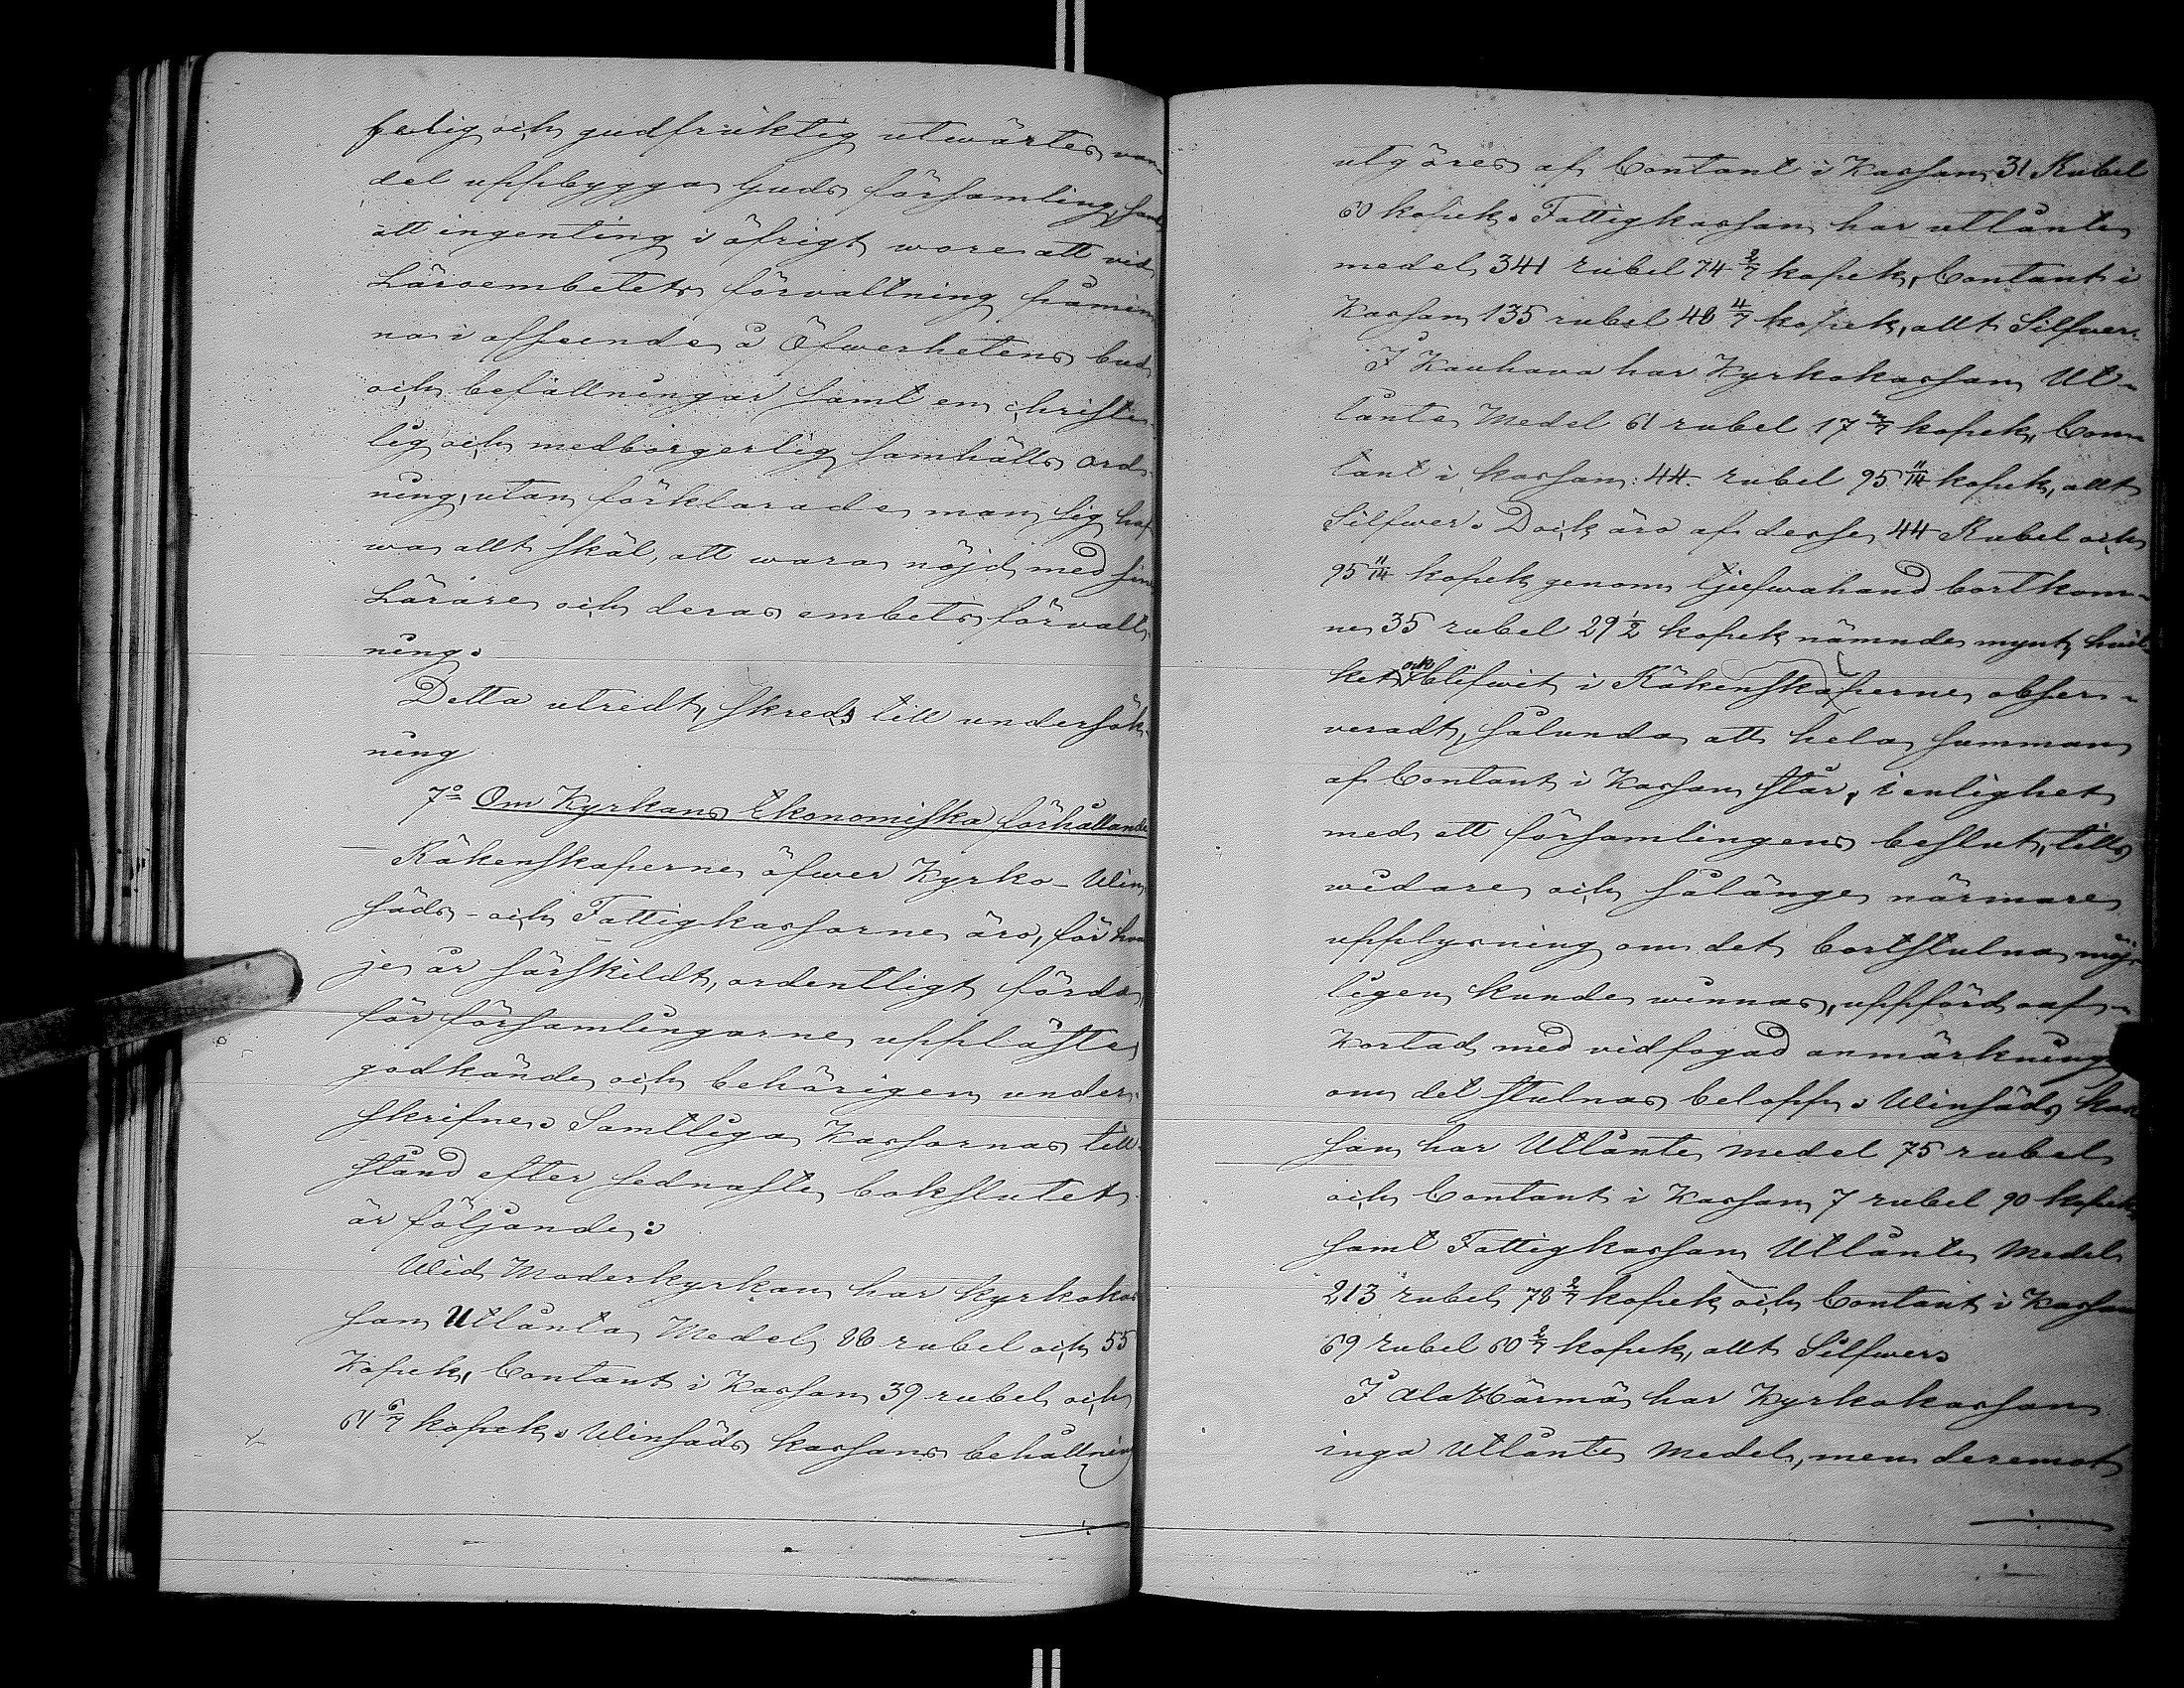 felig och gudfruktig utwärtes van-
del uppbygga Guds församling, samt
att ingenting i öfrigt wore att vid
Läroembetets förvaltning påmin-
na i afseende å Öfwerhetens bud
och befallningar samt en christe-
lig och medborgerlig samhälls ord-
ning, utan förklarade man sig haf-
wa allt skäl, att wara nöjd med sina
Lärare och deras embets förvalt-
ning.
Detta utredt, skreds till undersök-
ning
7:o Om Kyrkans Ekonomiska förhållande
Räkenskaperne öfwer Kyrko- Win-
säds- och Fattigkassorne äro, för hwar-
je år särskildt, ordentligt förda
för församlingarne uppläste
godkände och behörigen under-
skrifne. Samtliga Kassornas till-
stånd efter sednaste bokslutet
är följande:
Wid Moderkyrkan har kyrkokas-
san Utlånta Medel 86 rubel och 55
Kopek, Contant i Kassan 39 rubel och
61 6/7 kopek. Winsäds kassans behållning
utgöres af Contant i Kassan 31 Rubel
60 kopek. Fattigkassan har utlånte
medel 341 rubel 74 2/7 kopek, Contant i
Kassan 135 rubel 48 4/7 kopek, allt Silfwer.
I Kauhava har Kyrkokassan Ut-
lånte Medel 61 rubel 17 4/7 kopek, Con-
tant i kassan 44 rubel 95 11/14 kopek, allt
Silfwer. Dock äro af desse 44 Rubel och
95 11/14 kopek genom tjufwahand bortkom-
ne 35 rubel 29 1/2 kopek nämnde mynt, hwil-
ket ock blifwit i Räkenskaperne obser-
veradt, sålunda att hela summan
af Contant i Kassan står, i enlighet
med ett församlingens beslut, tills
widare och sålänge närmare
upplysning om det bortstulna möj-
ligen kunde winnas, uppförd oaf-
kortad med vidfogad anmärkning
om det stulnas belopp. Winsäds kas-
san har Utlånte medel 75 rubel
och Contant i Kassan 7 rubel 90 kopek
samt Fattigkassan Utlånte Medel
213 rubel 78 2/7 kopek och Contant i Kassan
69 rubel 60 2/7 kopek, allt Silfwer.
I Ala Härmä har Kyrkokassan
inga Utlånte Medel, men deremot